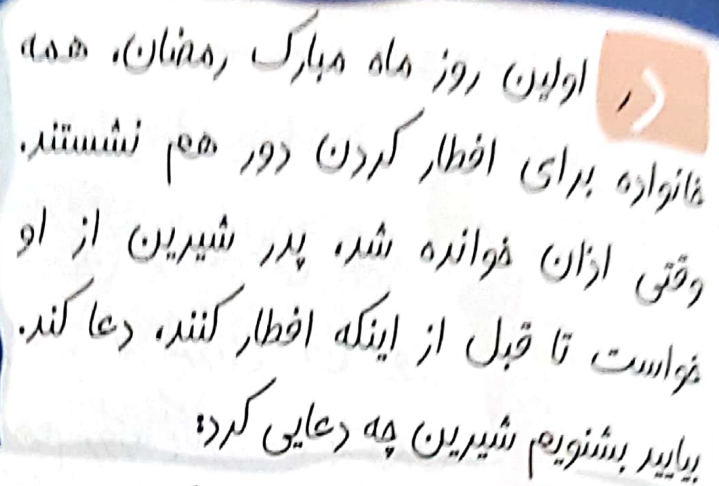 در اولین روز ماه مبارک رمضان، همه
خانواده برای افطار کردن دور هم نشستند.
وقتی اذان خوانده شد، پدر شیرین از او
خواست تا قبل از اینکه افطار کنند، دعا کند.
بیایید بشنویم شیرین چه دعایی کرد: